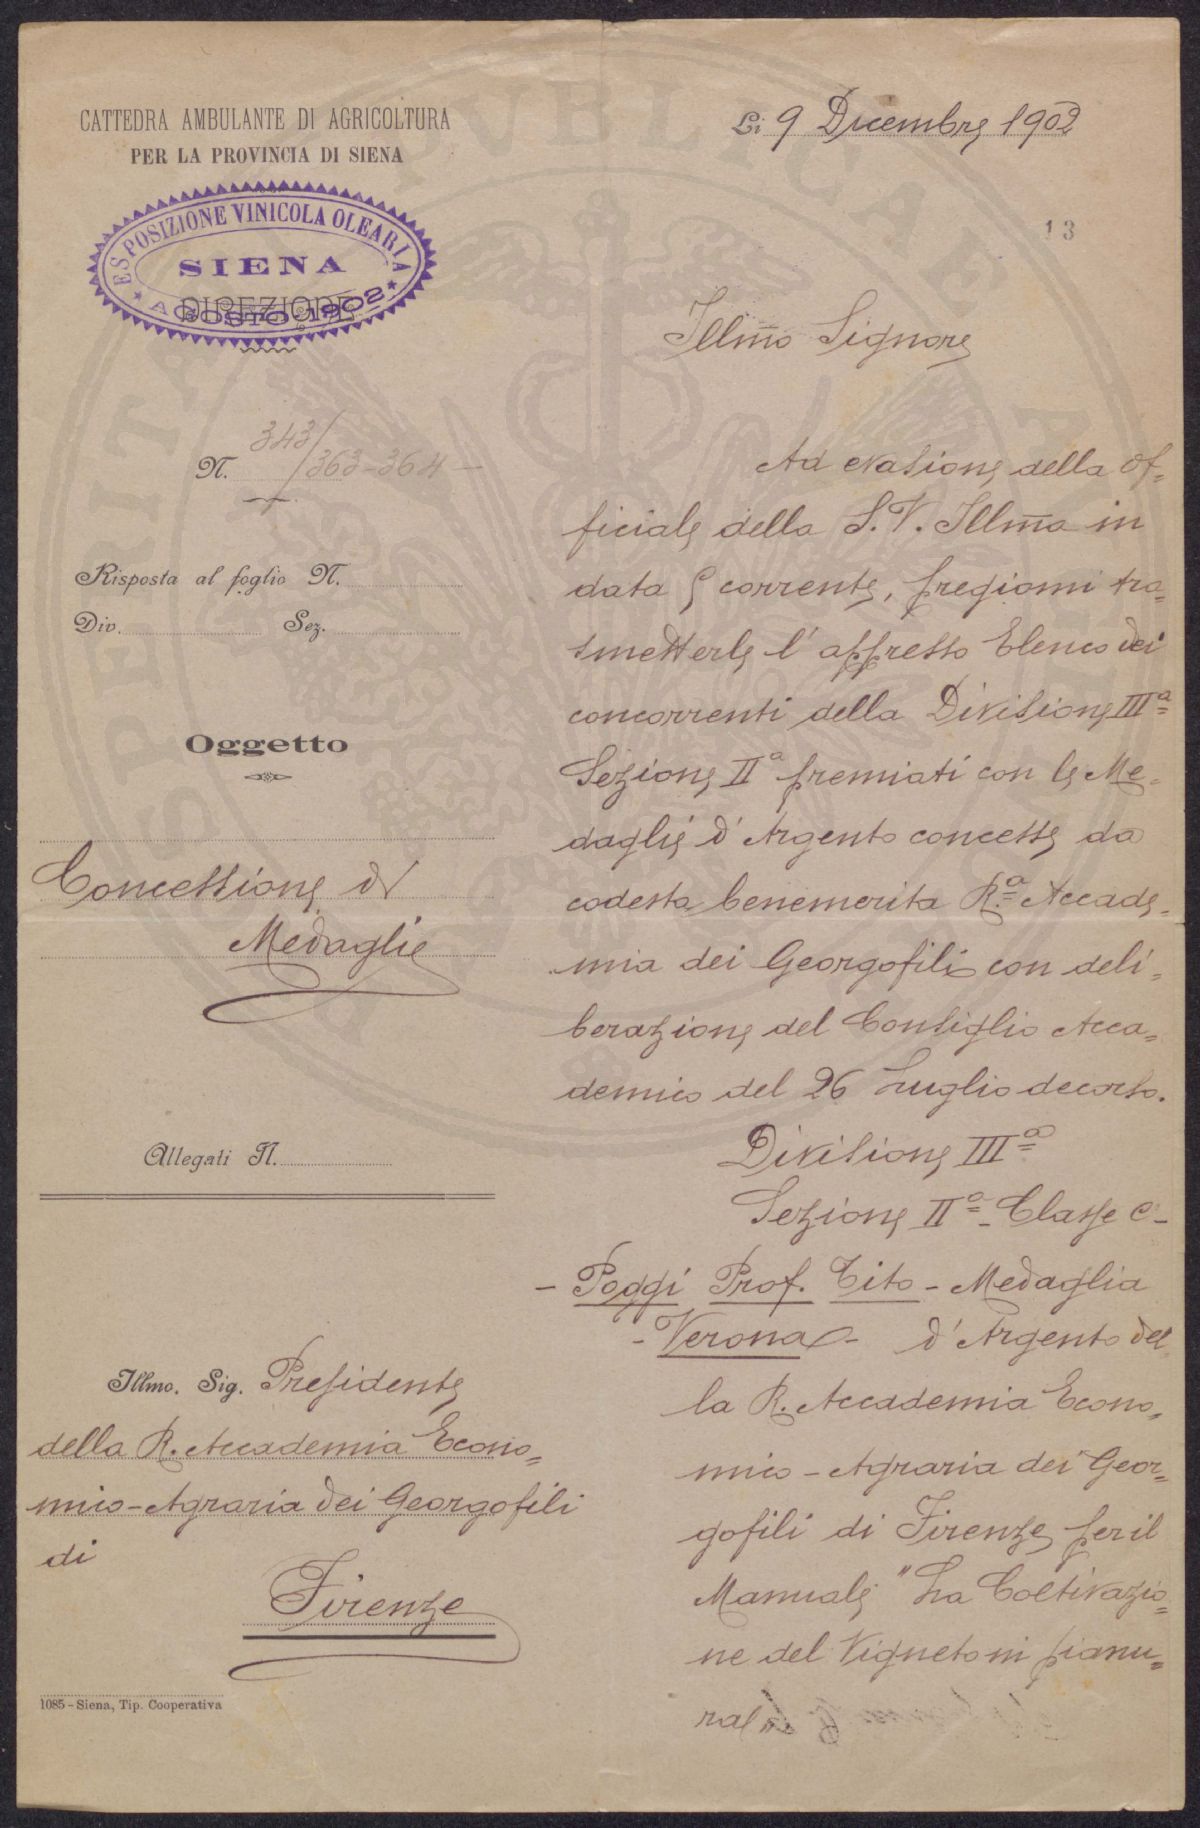 CATTEDRA AMBULANTE DI AGRICOLTURA
PER LA PROVINCIA DI SIENA
ESPOSIZIONE VINICOLA OLEARIA
SIENA
AGOSTO 1902
DIREZIONE
N. 343/363-364-
Risposta al foglio N.
Div. Sez.
Oggetto
Concessione di
Medaglie
Allegati N.
Illmo. Sig. Presidente
della R. Accademia Econo=
mico-Agraria dei Georgofili
di
Firenze
1085 - Siena, Tip. Cooperativa
Li 9 Dicembre 1902
13
Illmo Signore
Ad evasione della Of=
ficiale della S.V. Illma in
data 5 corrente, pregiomi tra=
smetterle l'appresso Elenco dei
concorrenti della Divisione IIIa
Sezione IIa premiati con le Me=
daglie d'Argento concesse da
codesta benemerita R.a Accade=
mia dei Georgofili con deli=
berazione del Consiglio Acca=
demico del 26 Luglio decorso.
Divisione IIIa
Sezione IIa - Classe C -
- Poggi Prof. Tito - Medaglia
- Verona - d'Argento del=
la R. Accademia Econo=
mico - Agraria dei Geor=
gofili di Firenze per il
Manuale "La Coltivazio=
ne del Vigneto in pianu=
ra"